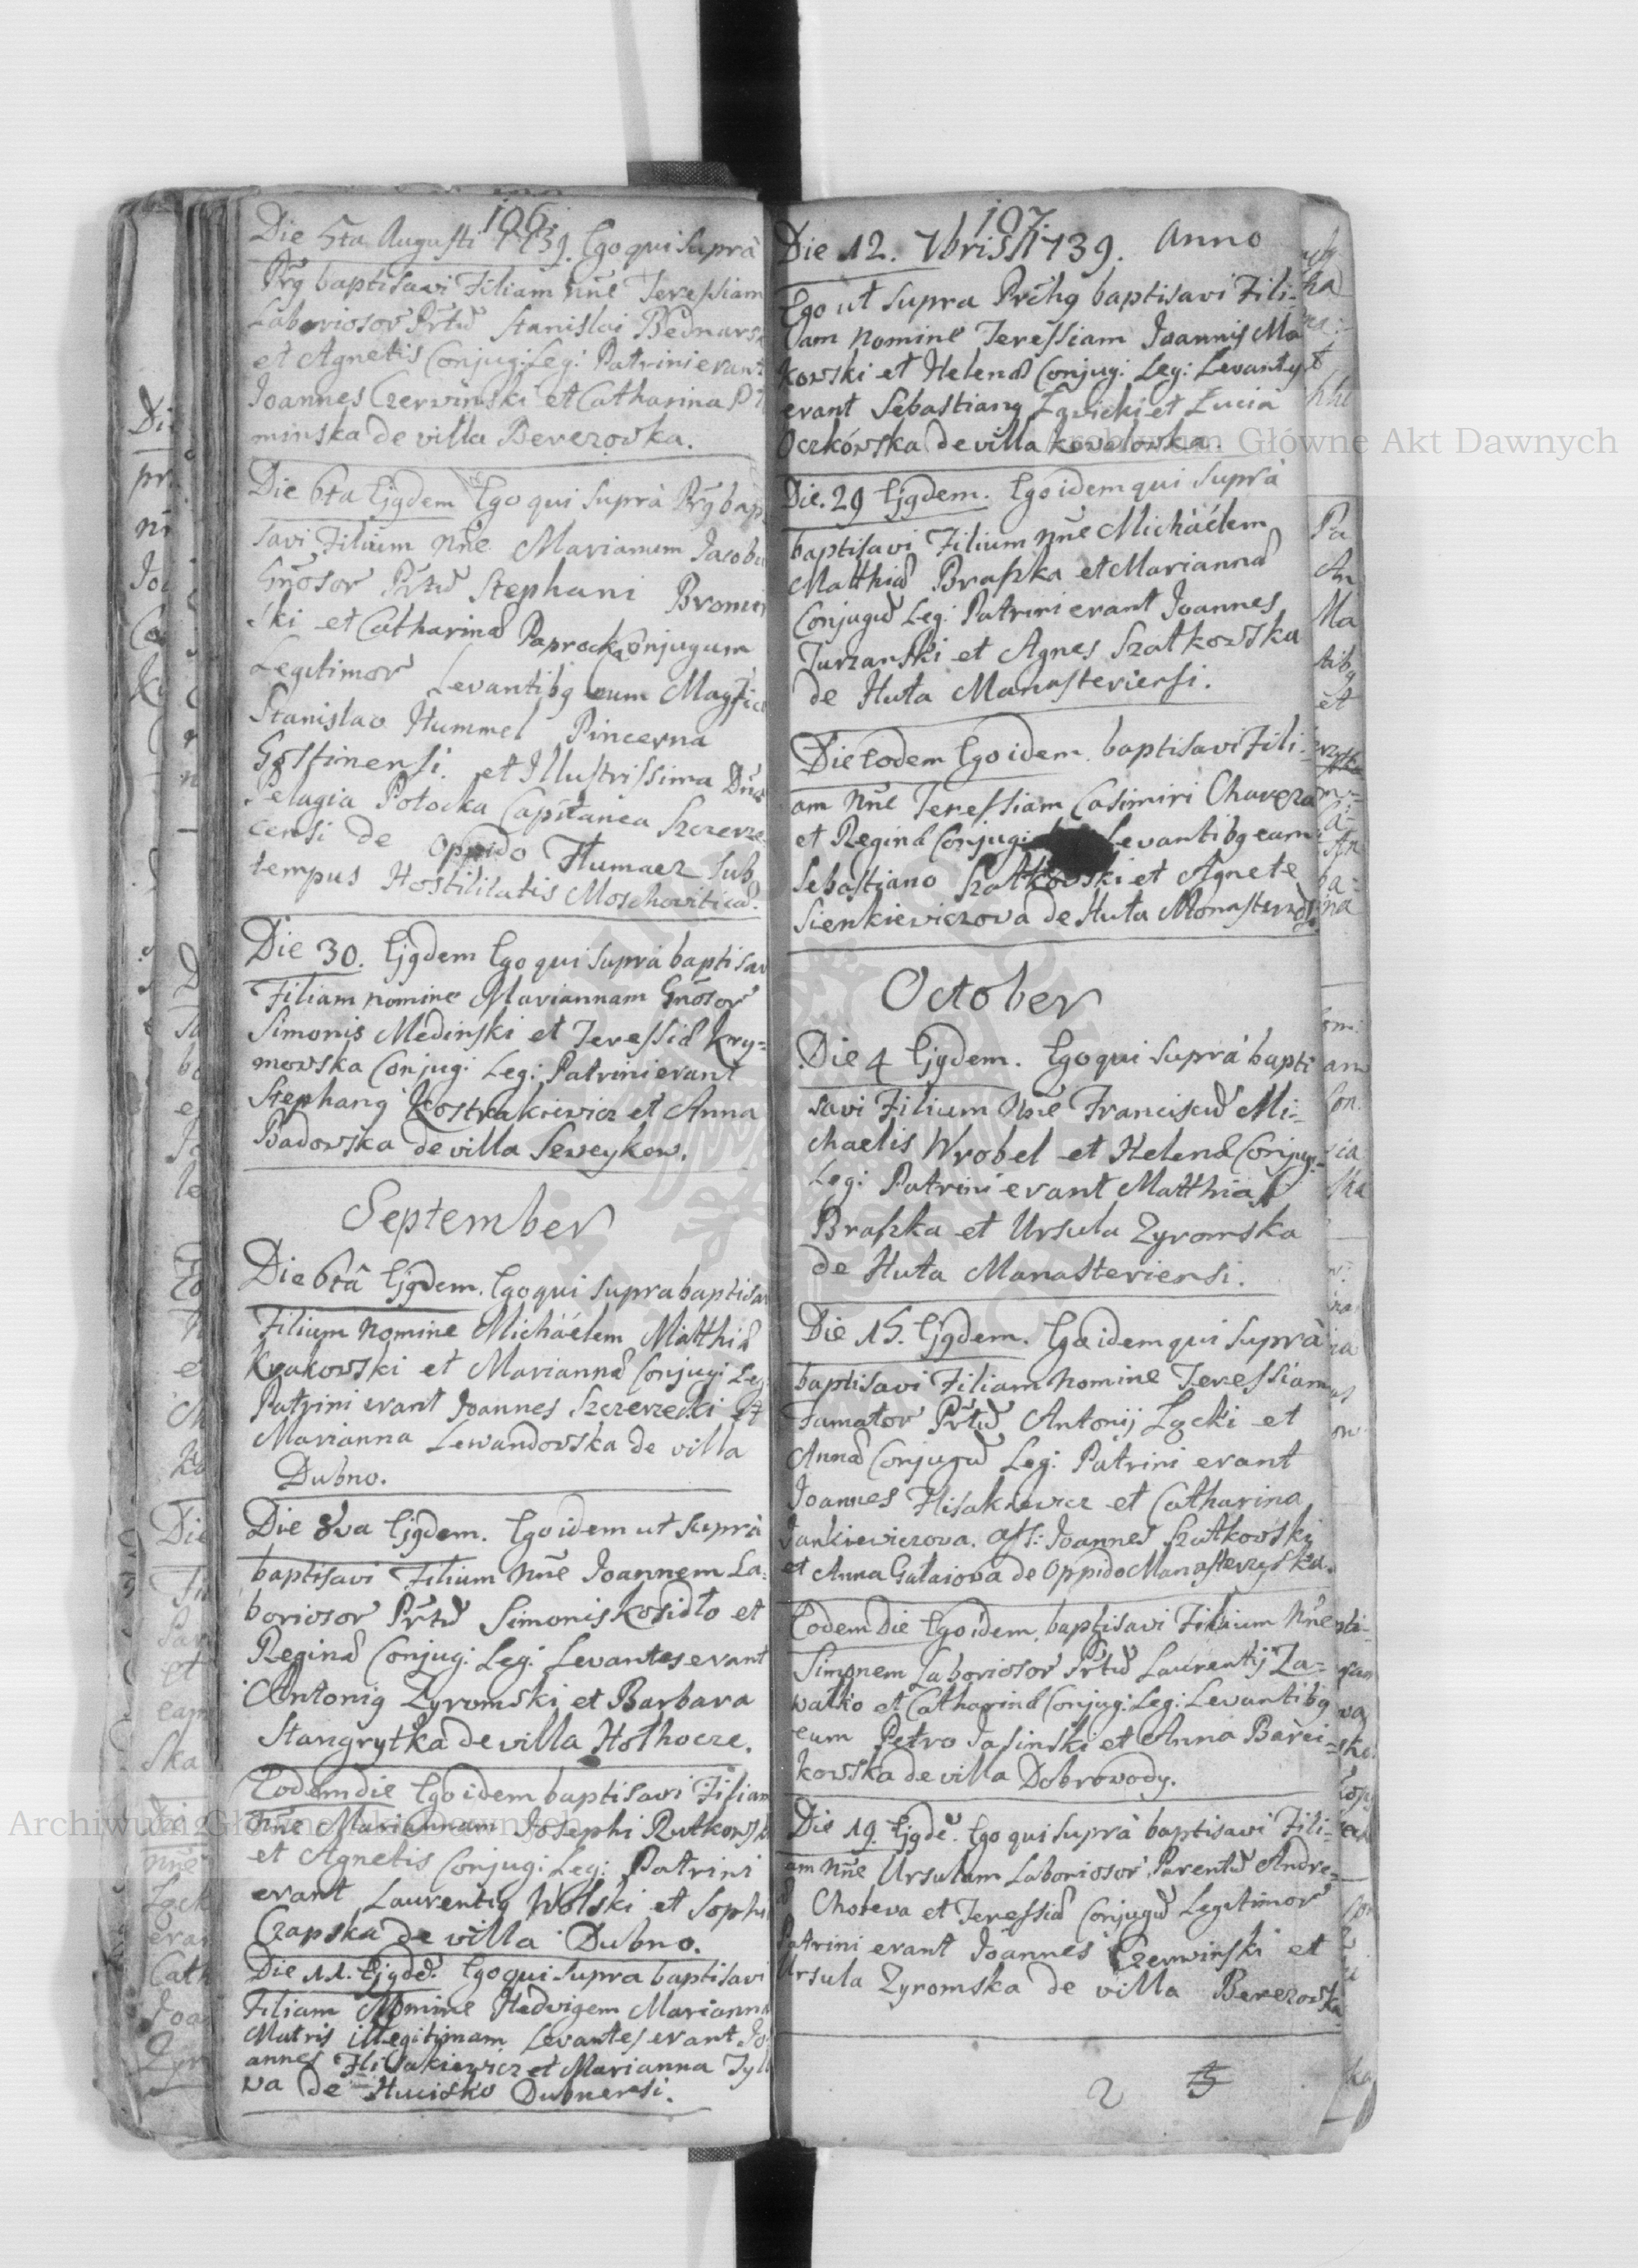 106.
Die 5ta Augusti 1739. Ego qui suprà
Pr̃g baptisavi Filiam nñe Teressiam
Laboriosor Pr̃tu Stanislai
et Agnetis Conjug: Leg: Patrini erant
Joannes Czerwinski et Catharina
minska de villa Berezovka.
Die 6ta Ejgdem Ego qui suprà Pr̃g bap
savi Filium Nñe Marianum Jacobu
Gñosor Pr̃tu Stephani Bromir
ski et Catharina Paprocka Conjugum
Legitimor Levantibg eum Magfico
Stanislao Hummel Pincerna
Gostinensi. et Illustrissima Dña
Pelagia Potocka Capitanea Szczerze
censi de Oppido Tłumacz sub
tempus Hostilitatis Moschovitica.
Die 30. Ejgdem Ego qui suprà baptisav
Filiam nomine Mariannam Gñosor
Simonis Medinski et Teressia Kry-
mowska Conjug: Leg: Patrini erant
Stephang Kostrakiewicz et Anna
Badowska de villa Seweykow.
September
Die 6tâ Ejgdem. Ego qui supra baptisa
Filium Nomine Michäélem Matthia
Krakowski et Marianna Conjug: Leg
Patrini erant Joannes Szczerzecki et
Marianna Lewandowska de villa
Dubno.
Die 8va Ejgdem. Ego idem ut suprà
baptisavi Filium Nñe Joannem La:
boriosor Pr̃tu Simonis Kosidło et
Regina Conjug: Leg: Levantes erant
Antonig Zyromski et Barbara
Stangrytka de villa Hołhocze.
Eodem die Ego idem baptisavi Filiam
Nñe Mariannam Josephi Rutkowsk
et Agnetis Conjug: Leg: Patrini
erant Laurentig Wolski et Sophi
Czapska de villa Dubno.
Die 11. Ejgde. Ego qui supra baptisavi
Filiam Nomine Hedvigem Marianna
Matris illegitimam Levantes erant Jo
annes Flisakiewicz et Marianna
va de Hucisko Dubnensi.
107.
Die 12. 7bris 1739. Anno
Ego ut supra Prc̃hg baptisavi Fili-
am nomine Teressiam Joannis Ma
kowski et Helena Conjug: Leg: Levantes
erant Sebastiang Ławicki et Łucia
Oczkówska de villa Kowalowka.
Die. 29 Ejgdem. Ego idem qui suprà
baptisavi Filium nñe Michäélem
Matthia Braszka et Marianna
Conjugu Leg: Patrini erant Joannes
Turzanski et Agnes Szatkowska
de Huta Manasteriensi.
Die Eodem Ego idem baptisavi Fili-
am Nñe Teressiam Casimiri Chaveza
et Regina Conjug: Levantibg eam
Sebastiano Szatkowski et Agnete
Sienkiewiczova de Huta Monasterz
October
Die 4 Ejgdem. Ego qui suprà bapti
savi Filium Nñe Franciscu Mi-
chaelis Wrobel et Helena Conjug:
Leg: Patrini erant Matthias
Braszka et Ursula Zyromska
de Huta Manasteriensi.
Die 15. Ejgdem. Ego idem qui suprà
baptisavi Filiam nomine Teressiam
Famator Pr̃tu Antonij Łącki et
Anna Conjugu Leg: Patrini erant
Joannes Flisakiewicz et Catharina
Jankiewiczova. Ass: Joannes Szatkowski
et Anna Gałaiova de Oppido Manasterzyska.
Eodem Die Ego idem baptisavi Filium Nñe
Simonem Laboriosor Pr̃tu Laurentij Za-
wałko et Catharina Conjug: Leg: Levantibg
eum Petro Jasinski et Anna Barci-
kowska de villa Dobrowody.
Die 19. Ejgde. Ego qui suprà baptisavi Fili-
am Nñe Ursulam Laboriosor Parentu Andre-
Choleva et Teressia Conjugu Legitimor
Patrini erant Joannes Czerwinski et
Ursula Zyromska de villa Berezowka
2
Archiwum Główne Akt Dawnych
Archiwum Główne Akt Dawnych